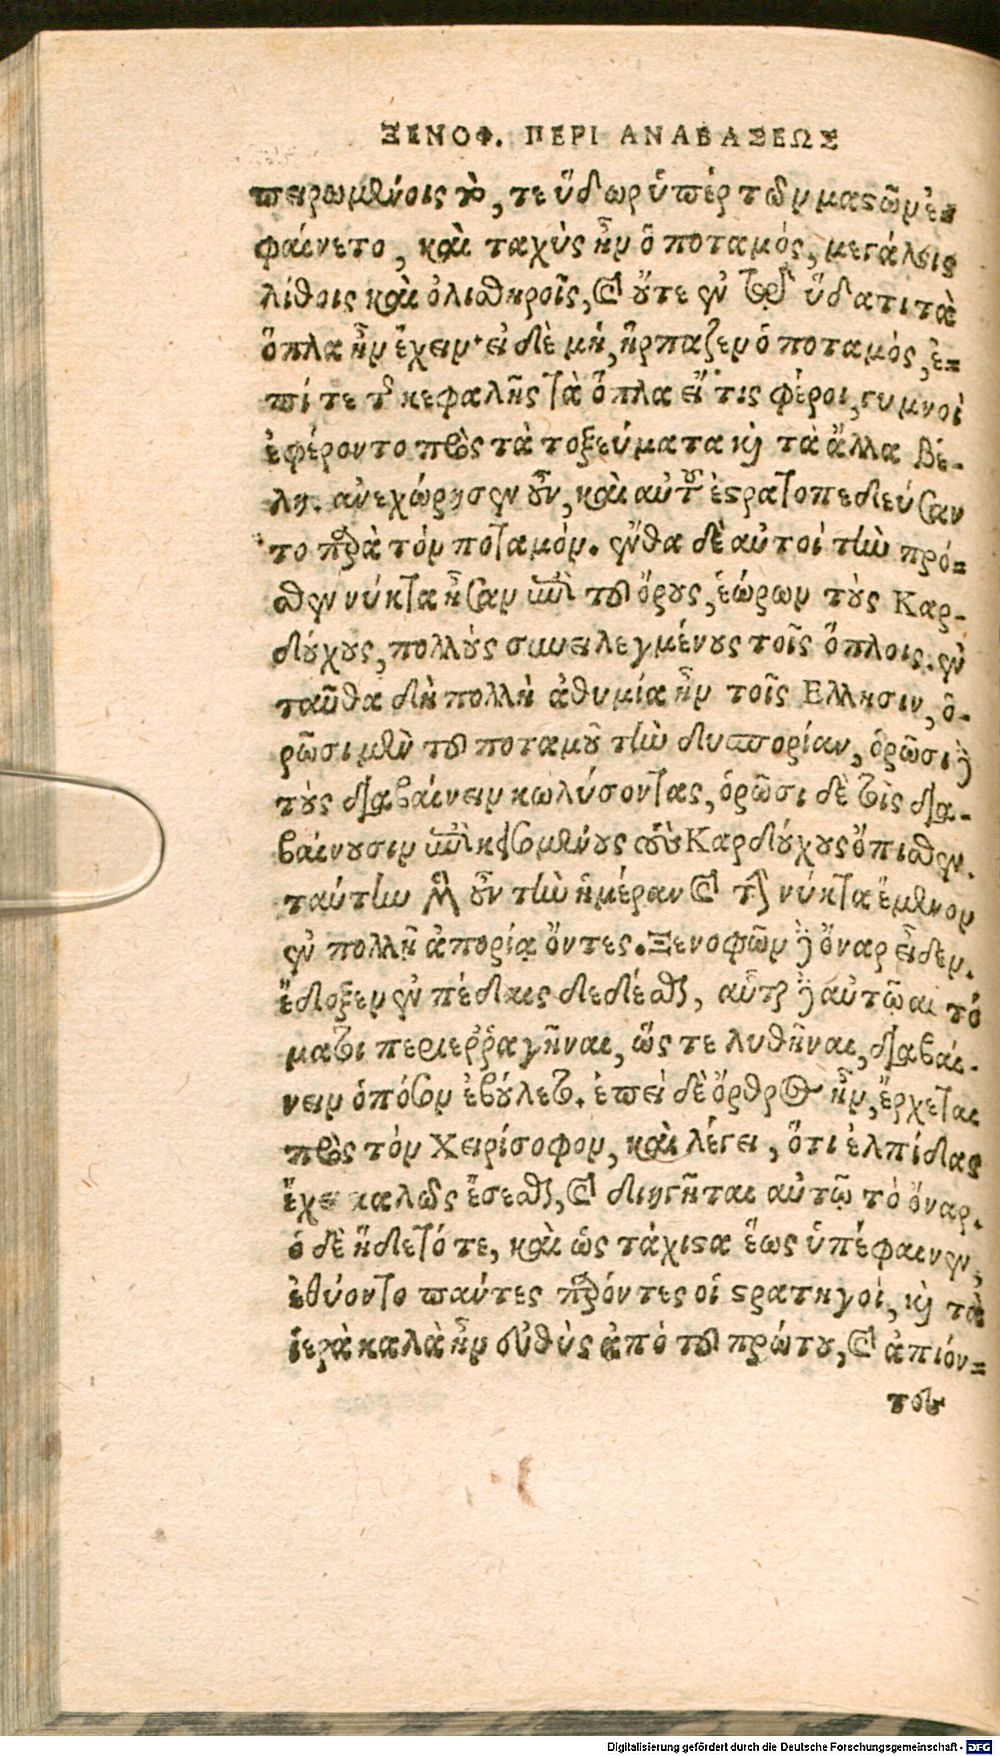 ΞΕΝΟΦ. ΠΕΡΙ ΑΝΑΒΑΣΕΩΣ
πειρωμένοις τό, τε ὕδωρ ὑπὲρ τῶν μαστῶν ἐ=
φαίνετο, καὶ ταχὺς ἦν ὁ ποταμός, μεγάλοις
λίθοις καὶ ὀλισθηροῖς, καὶ οὔτε ἐν τῷ ὕδατι τὰ
ὅπλα ἦν ἔχειν· εἰ δὲ μή, ἥρπαζεν ὁ ποταμός, ἐ=
πί τε τῆς κεφαλῆς τὰ ὅπλα εἴ τις φέροι, γυμνοὶ
ἐφέροντο πρὸς τὰ τοξεύματα καὶ τὰ ἄλλα βέ-
λη. ἀνεχώρησαν οὖν, καὶ αὐτοῦ ἐστρατοπεδεύσαν
το παρὰ τὸν ποταμόν. ἔνθα δὲ αὐτοὶ τὴν πρό=
σθεν νύκτα ἦσαν ἐπὶ τοῦ ὄρους, ἑώρων τοὺς Καρ-
δούχους, πολλοὺς συνειλεγμένους τοῖς ὅπλοις. ἐν
ταῦθα δὴ πολλὴ ἀθυμία ἦν τοῖς Ελλησιν, ὁ-
ρῶσι μὲν τοῦ ποταμοῦ τὴν δυσπορίαν, ὁρῶσι δὲ
τοὺς διαβαίνειν κωλύσοντας, ὁρῶσι δὲ τοῖς δια-
βαίνουσιν ἐπικεισομένους τοὺς Καρδούχους ὄπισθεν.
ταύτην μὲν οὖν τὴν ἡμέραν καὶ τὴν νύκτα ἔμενον
ἐν πολλῇ ἀπορίᾳ ὄντες. Ξενοφῶν δὲ ὄναρ εἶδεν.
ἔδοξεν ἐν πέδαις δεδέσθαι, αὗται δὲ αὐτῷ αὐτό
μαται περιερῤραγῆναι, ὥς τε λυθῆναι, διαβαί-
νειν ὁπόσον ἐβούλετο. ἐπεὶ δὲ ὄρθρος ἦν, ἔρχεται
πρὸς τὸν Χειρίσοφον, καὶ λέγει, ὅτι ἐλπίδας
ἔχει καλῶς ἔσεσθαι, καὶ διηγῆται αὐτῷ τὸ ὄναρ.
ὁ δὲ ἥδετό τε, καὶ ὡς τάχιστα ἕως ὑπέφαινεν,
ἐθύοντο πάντες παρόντες οἱ στρατηγοί, καὶ τὰ
ἱερὰ καλὰ ἦν εὐθὺς ἀπὸ τοῦ πρώτου, καὶ ἀπιόν=
τες